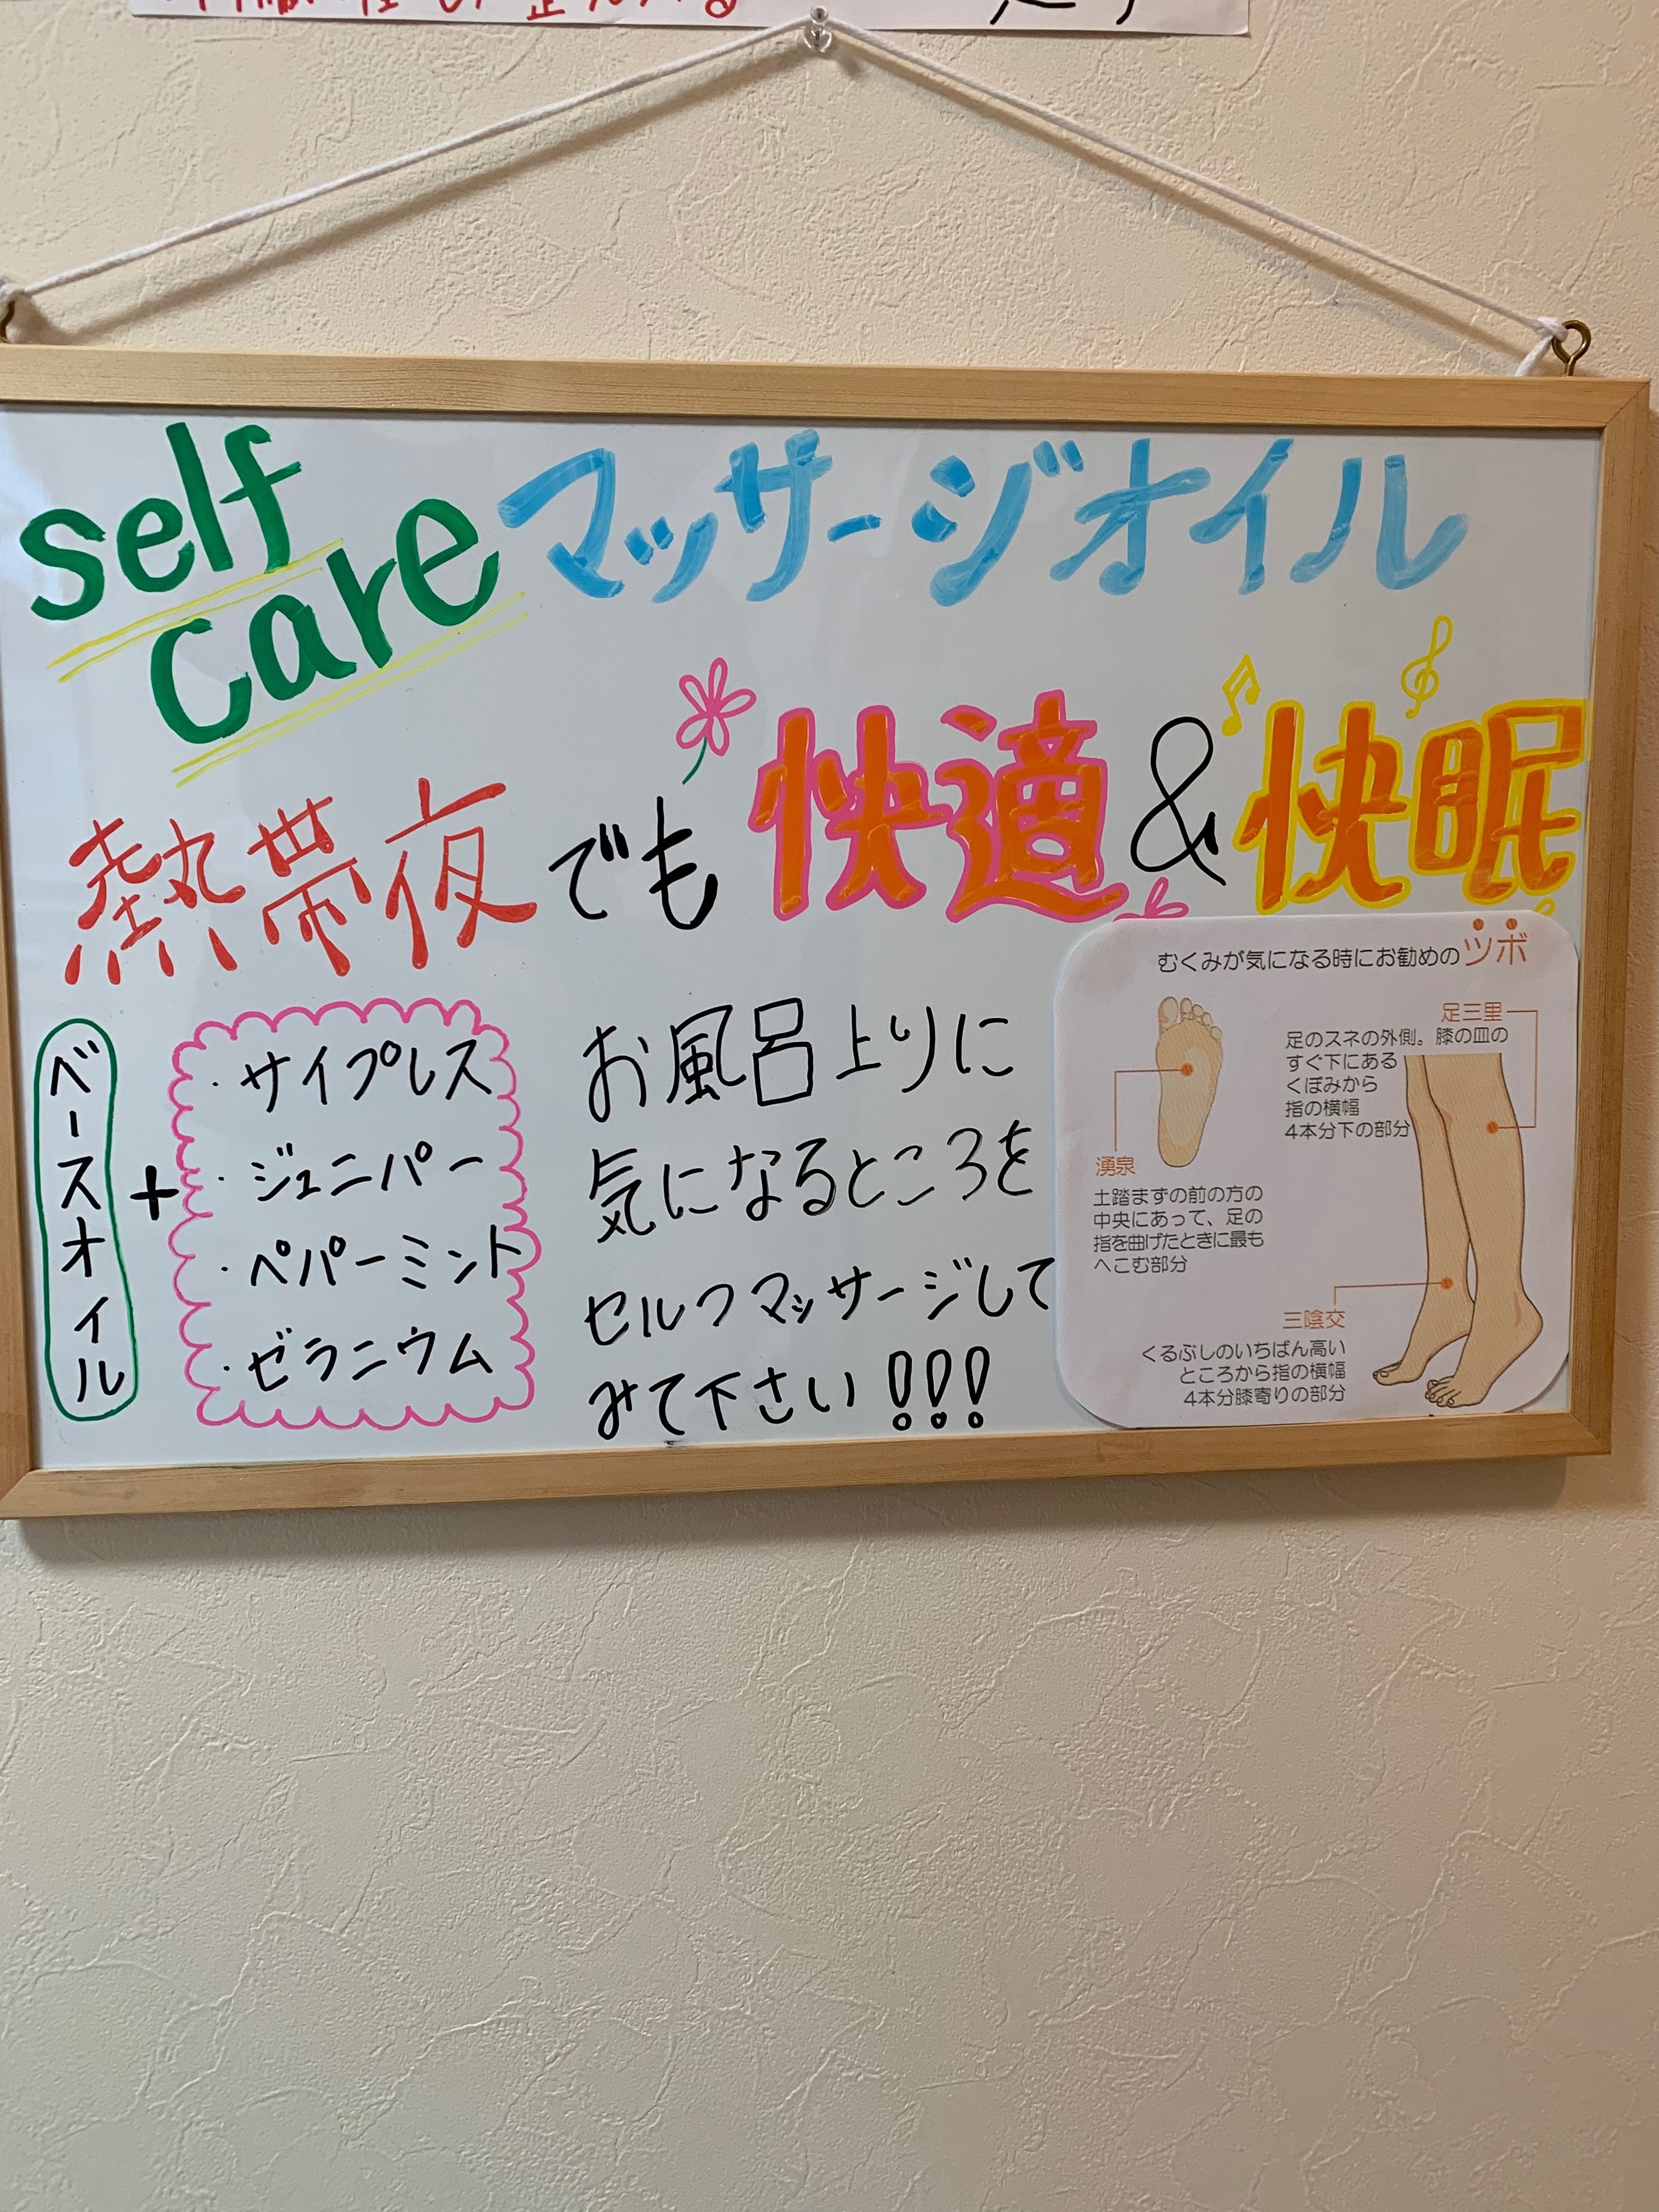 self
care
マッサージオイル
熱帯夜でも快適&快眠
ベースオイル
+
・サイプレス
・ジュニパー
・ペパーミント
・ゼラニウム
お風呂上りに
気になるところを
セルフマッサージして
みて下さい!!!
むくみが気になる時にお勧めのツボ
湧泉
土踏まずの前の方の
中央にあって、足の
指を曲げたときに最も
へこむ部分
足三里
足のスネの外側。膝の皿の
すぐ下にある
くぼみから
指の横幅
4本分下の部分
三陰交
くるぶしのいちばん高い
ところから指の横幅
4本分膝寄りの部分